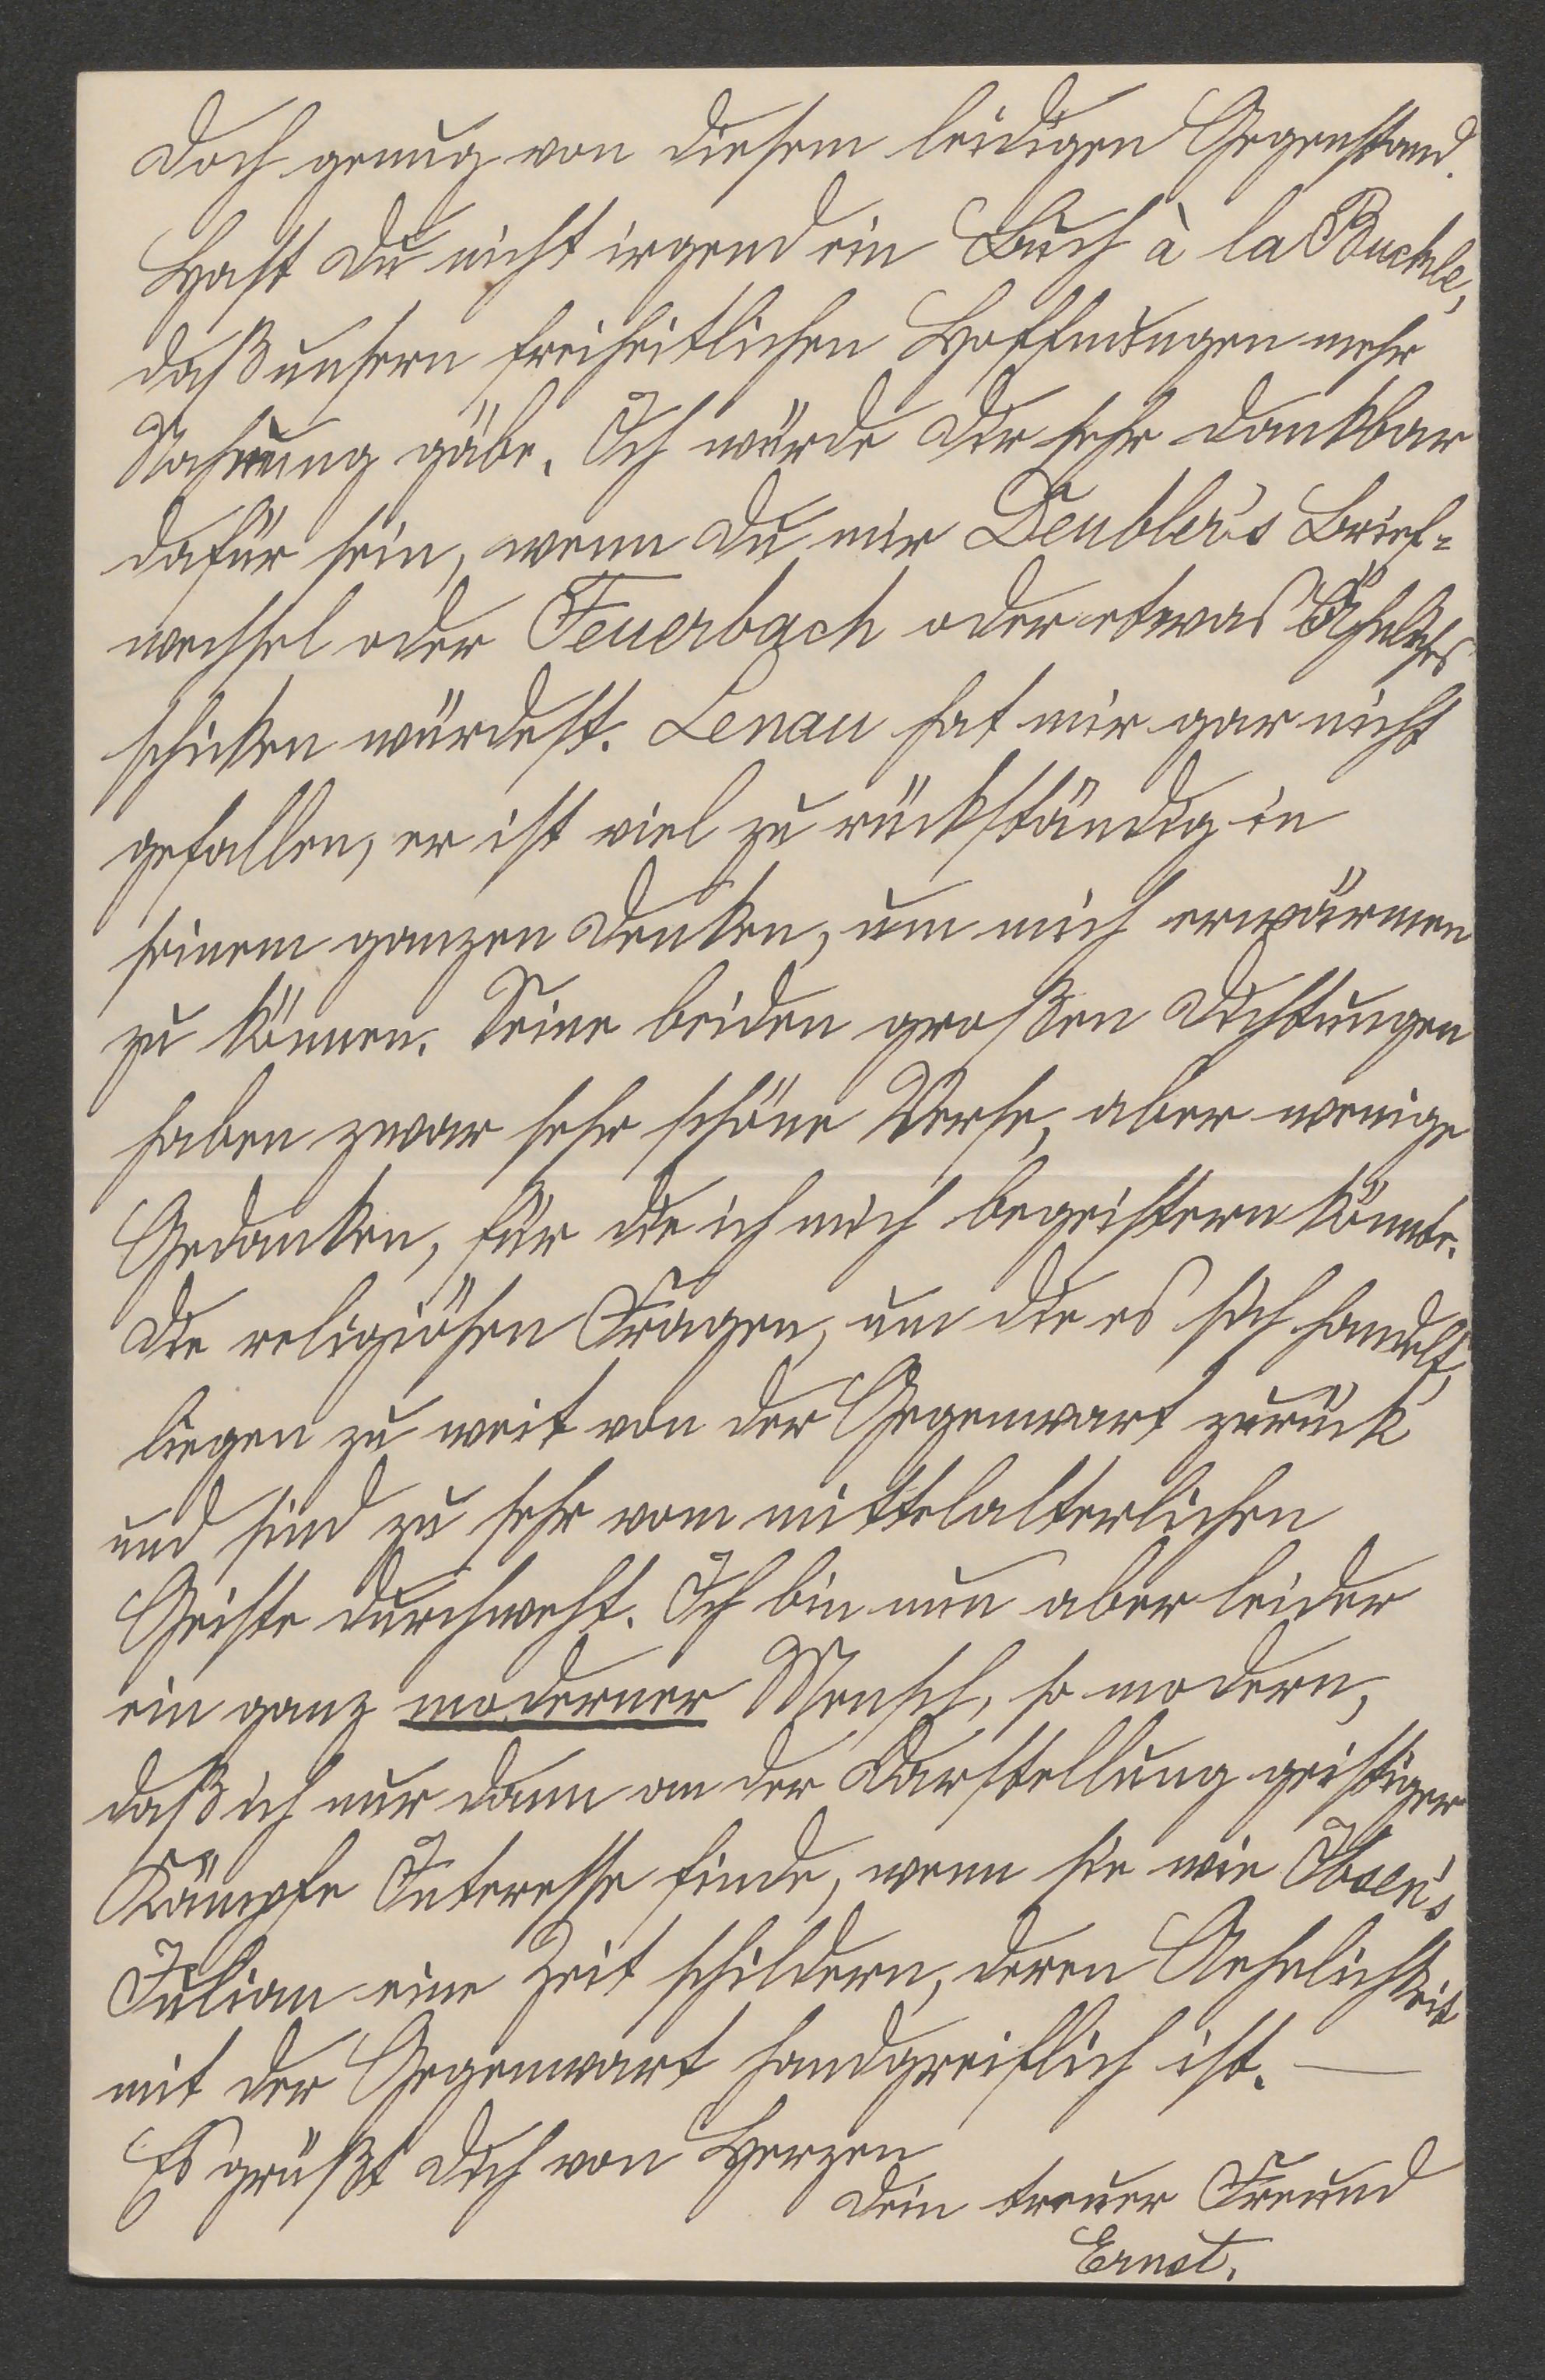 Doch genug von diesem leidigen Gegenstand.
Hast Du nicht irgend ein Buch à la Buckle,
daß unsern freiheitlichen Hoffnungen mehr
Nahrung gäbe. Ich würde Dir sehr dankbar
dafür sein, wenn Du mir Deubler's Brief=
wechsel oder Feuerbach oder etwas Ähnliches
schicken würdest. Lenau hat mir gar nicht
gefallen, er ist viel zu rückständig in
seinem ganzen Denken, um mich erwärmen
zu können. Seine beiden großen Dichtungen
haben zwar sehr schöne Verse, aber wenige
Gedanken, für die ich mich begeistern könnte.
Die religiösen Fragen, um die es sich handelt,
liegen zu weit von der Gegenwart zurück
und sind zu sehr vom mittelalterlichen
Geiste durchweht. Ich bin nun aber leider
ein ganz moderner Mensch, so modern,
daß ich nur dann an der Darstellung geistiger
Kämpfe Interesse finde, wenn sie wie Ibsen's
Julian eine Zeit schildern, deren Aehnlichkeit
mit der Gegenwart handgreiflich ist. —
Es grüßt Dich von Herzen
Dein treuer Freund
Ernst.